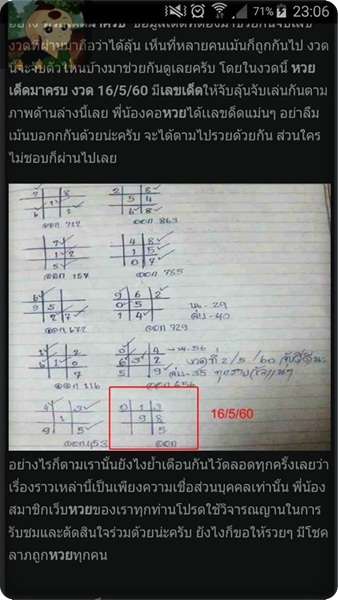 71% 23:06
งวดที่ผ่านมาถือว่าได้ลุ้น เห็นที่หลายคนเม้นก็ถูกกันไป งวด
นี้จะจับตัวไหนบ้างมาช่วยกันดูเลยครับ โดยในงวดนี้ หวย
เด็ดมาครบ งวด 16/5/60 มีเลขเด็ดให้จับลุ้นจับเล่นกันตาม
ภาพด้านล่างนี้เลย พี่น้องคอหวยได้เเลขเด็ดแม่นๆ อย่าลืม
เม้นบอกกันด้วยน่ะครับ จะได้ตามไปรวยด้วยกัน ส่วนใคร
ไม่ชอบก็ผ่านไปเลย
7 8
1
6 2
ออก 712
2 8
5 4
6 8
ออก 863
7
1 2
5
ออก 157
4 8
1 5
0 7
ออก 785
6
9 5
2 7
ออก 672
9 6 2
0 5
1 4
ออก 729
บน - 29
ล่าง - 40
1 2
6 0
7
ออก 116
0 4
6 3 2
5 9
ออก 656
บน-56
ล่าง-35
งวดที่ 2/5/60
4 3
1
9 5
ออก 453
0 1 3
9 8
5
ออก
16/5/60
อย่างไรก็ตามเรานั้นยังไงย้ำเตือนกันไว้ตลอดทุกครั้งเลยว่า
เรื่องราวเหล่านี้เป็นเพียงความเชื่อส่วนบุคคลเท่านั้น พี่น้อง
สมาชิกเว็บหวยของเราทุกท่านโปรดใช้วิจารณญานในการ
รับชมและตัดสินใจร่วมด้วยน่ะครับ ยังไงก็ขอให้รวยๆ มีโชค
ลาภถูกหวยทุกคน